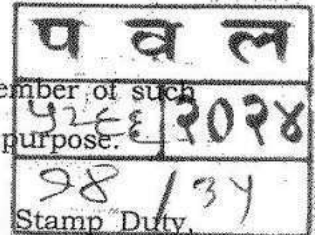 प व ल
ember of such
५२६६ २०२४
purpose.
१४ / ३५
Stamp Duty,